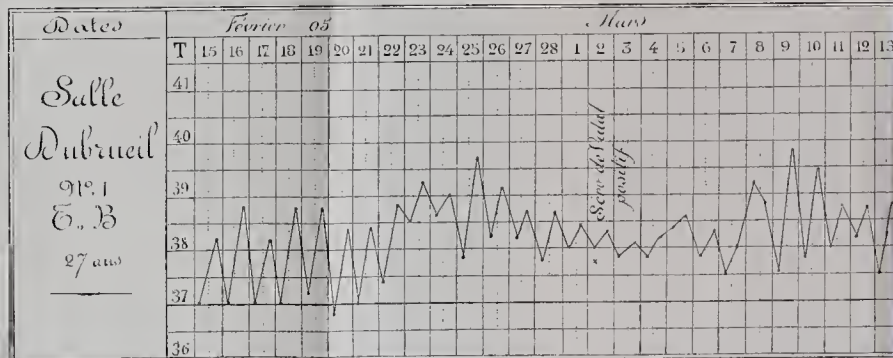 Dates
Février 05
Mars
T 15 16 17 18 19 20 21 22 23 24 25 26 27 28 1 2 3 4 5 6 7 8 9 10 11 12 13
41
40
39
38
37
36
Salle
Dubrueil
Nº. 1
E., B
27 ans
Séro de Vidal
positif